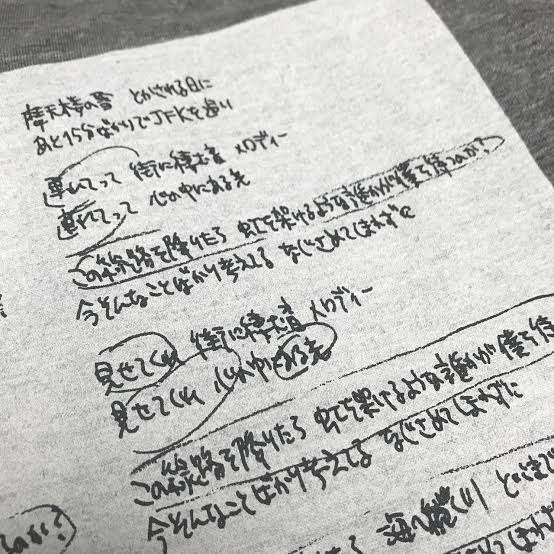 摩天楼の雪 とかされる日に
あと15分ばかりでJFKを追い
連れてって 街に積む音 メロディー
連れてって 心の中にある先
この線路を降りたら 虹を架けるような誰かが僕を待つのか?
今そんなことばかり考えてる なぐさめてしまわずに
見せてくれ 街に積む音 メロディー
見せてくれ 心の中にある先
この線路を降りたら 虹を架けるような誰かが僕を待
今そんなことばかり考えてる なぐさめてしまわずに
海へ続く川
のか?